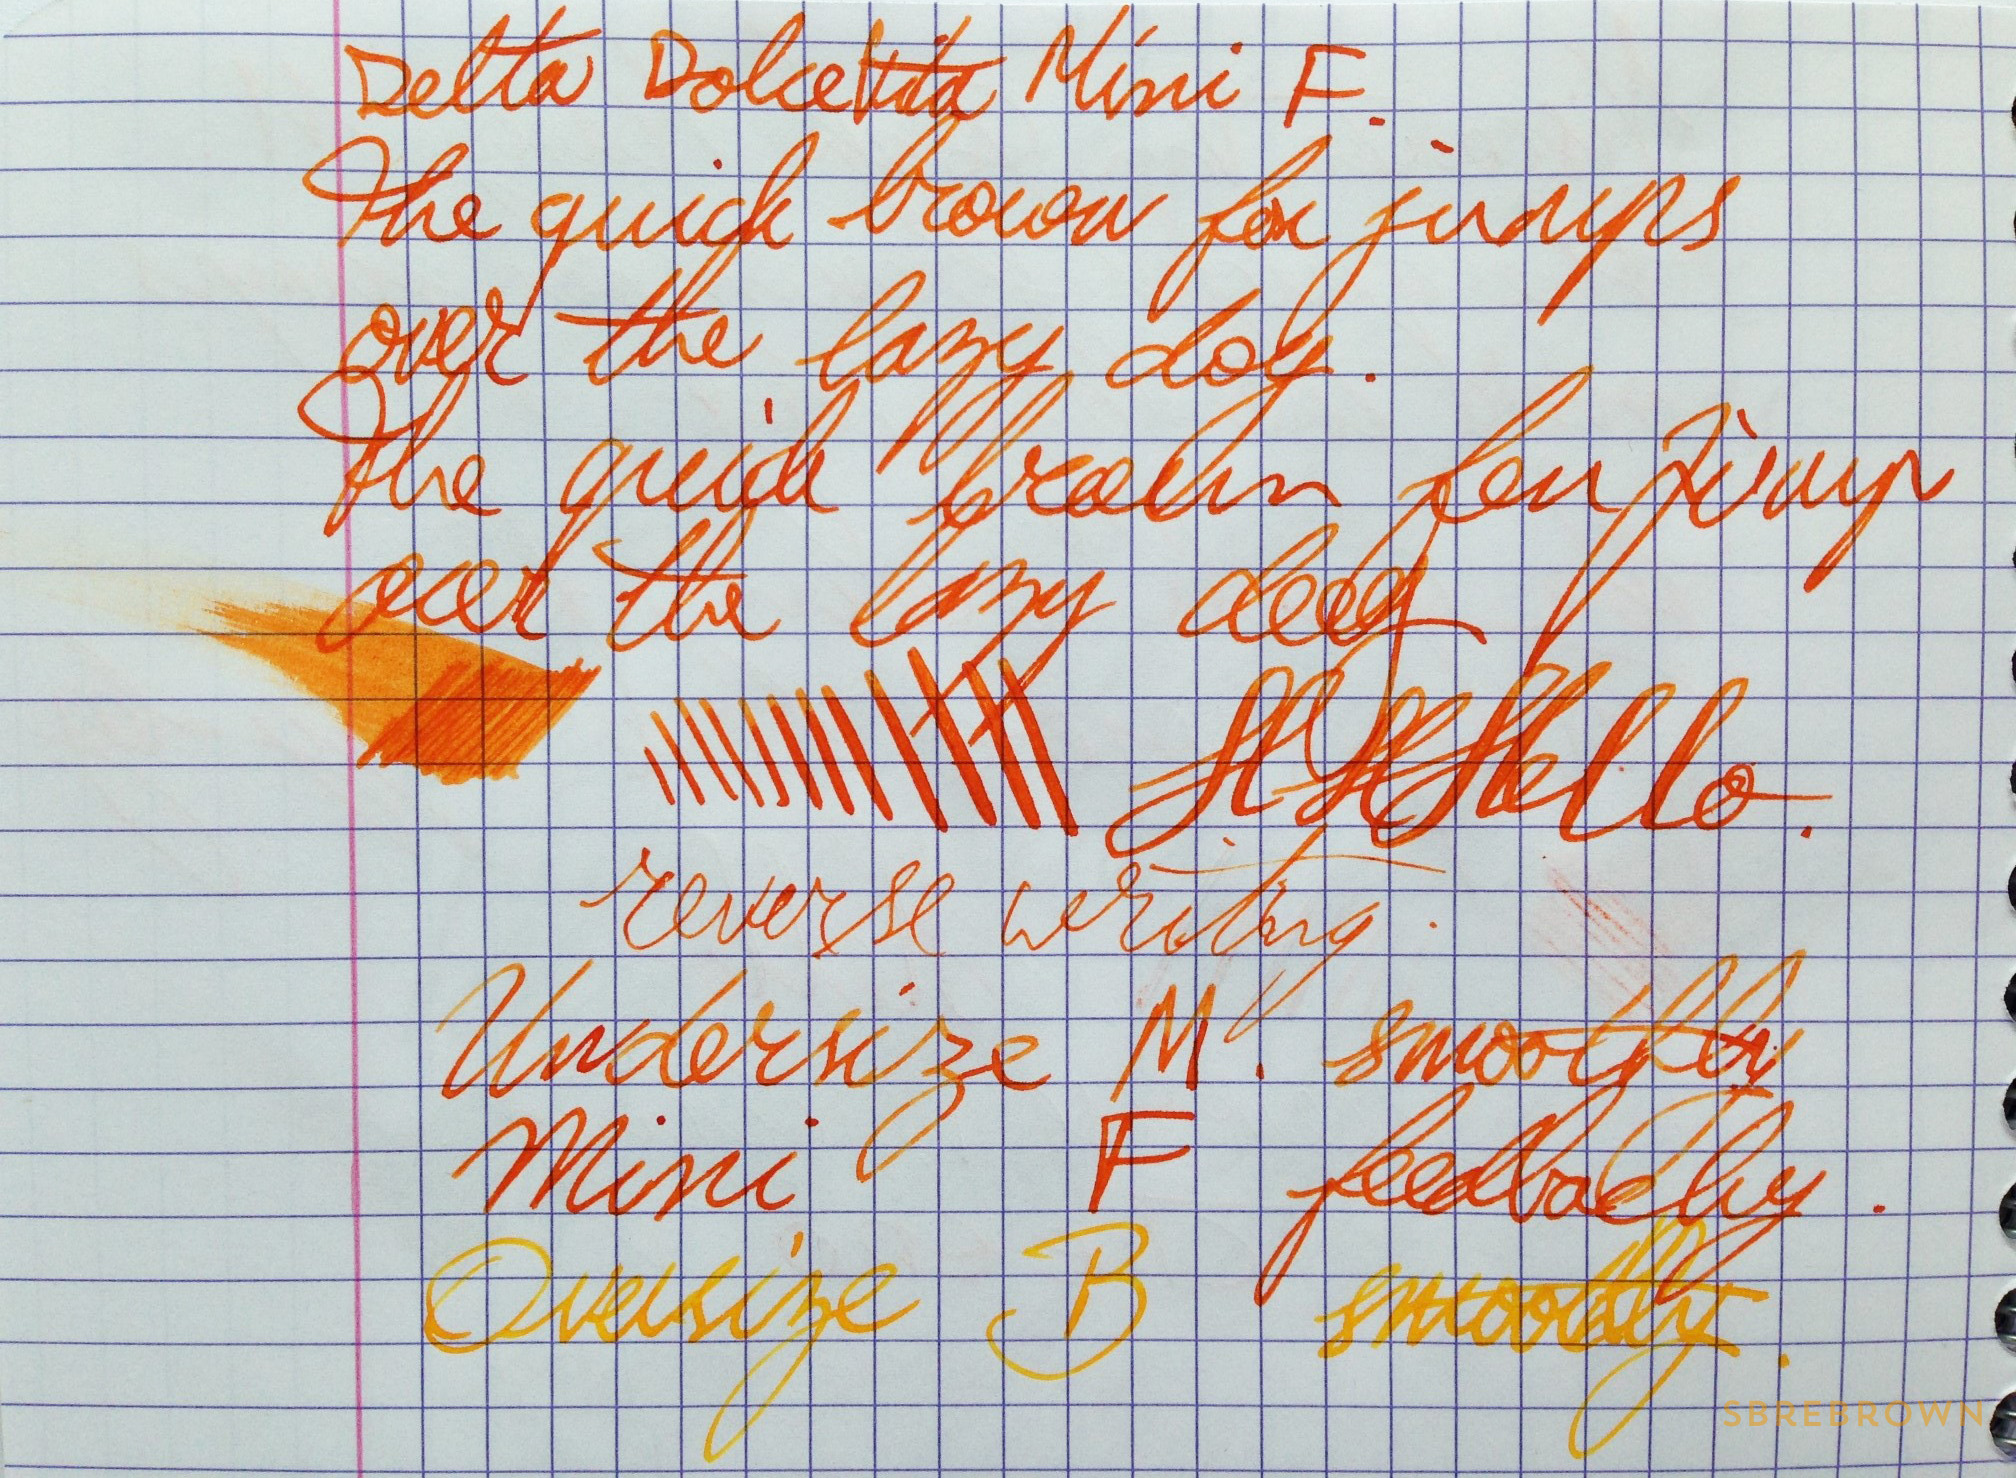 Delta Dolcevita Mini F.
The quick brown fox jumps
over the lazy dog.
The quick brown fox jump
over the lazy dog
Hello.
reverse writing.
Undersize M. smoothly
Mini F feedbacky.
Oversize B smoothly.
SBREBROWN